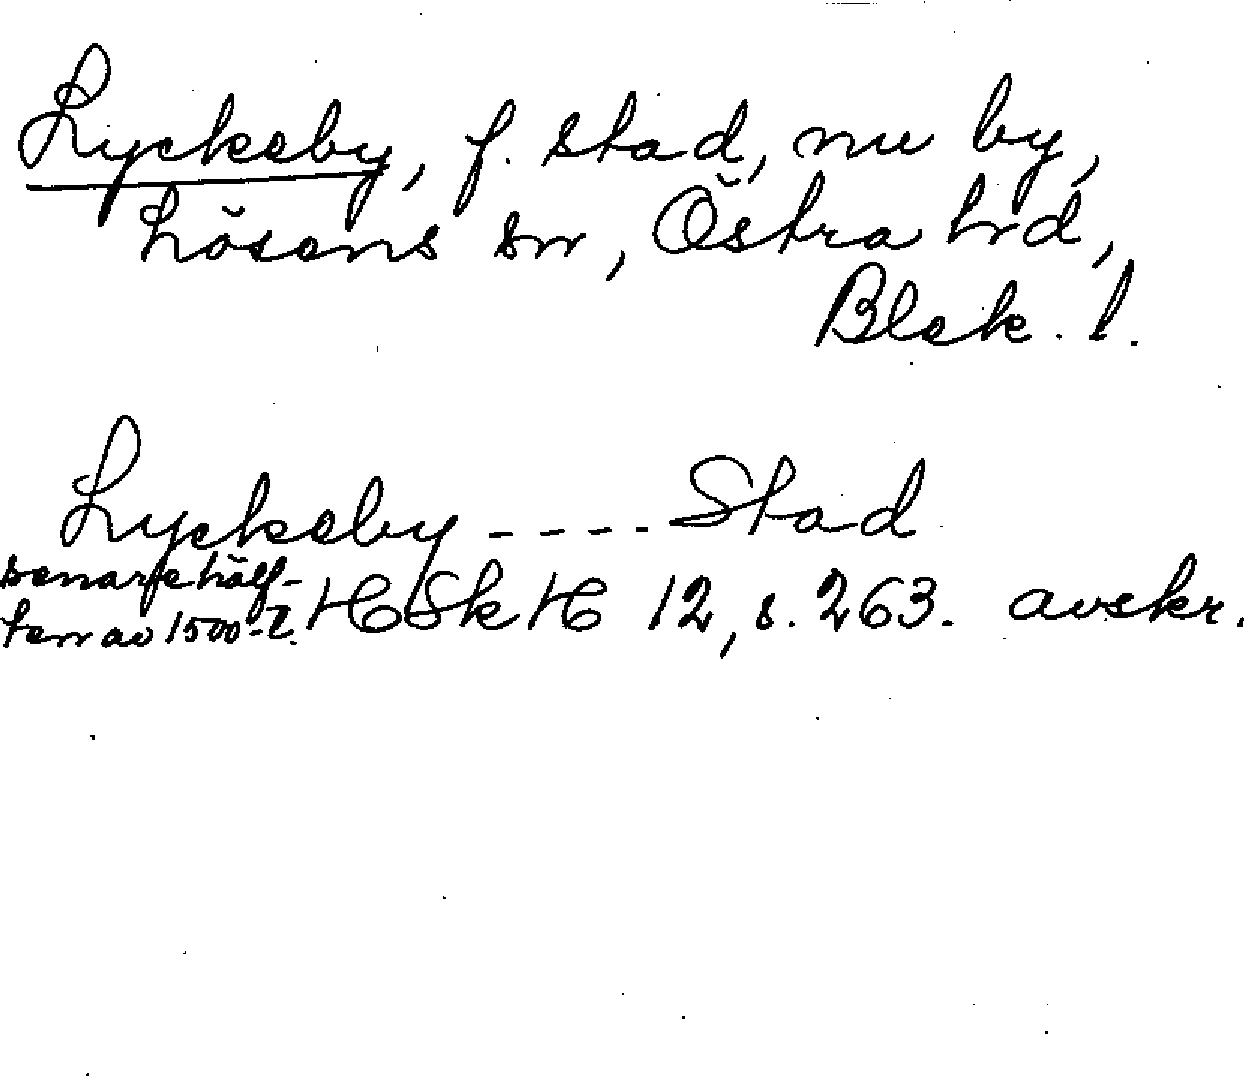 Lyckeby, f. stad, nu by,
Lösens sn, Östra hrd,
Blek. l.
Lyckeby - - - - Stad
senare hälf-
ten av 1500-t. HSkH 12, s. 263. avskr.